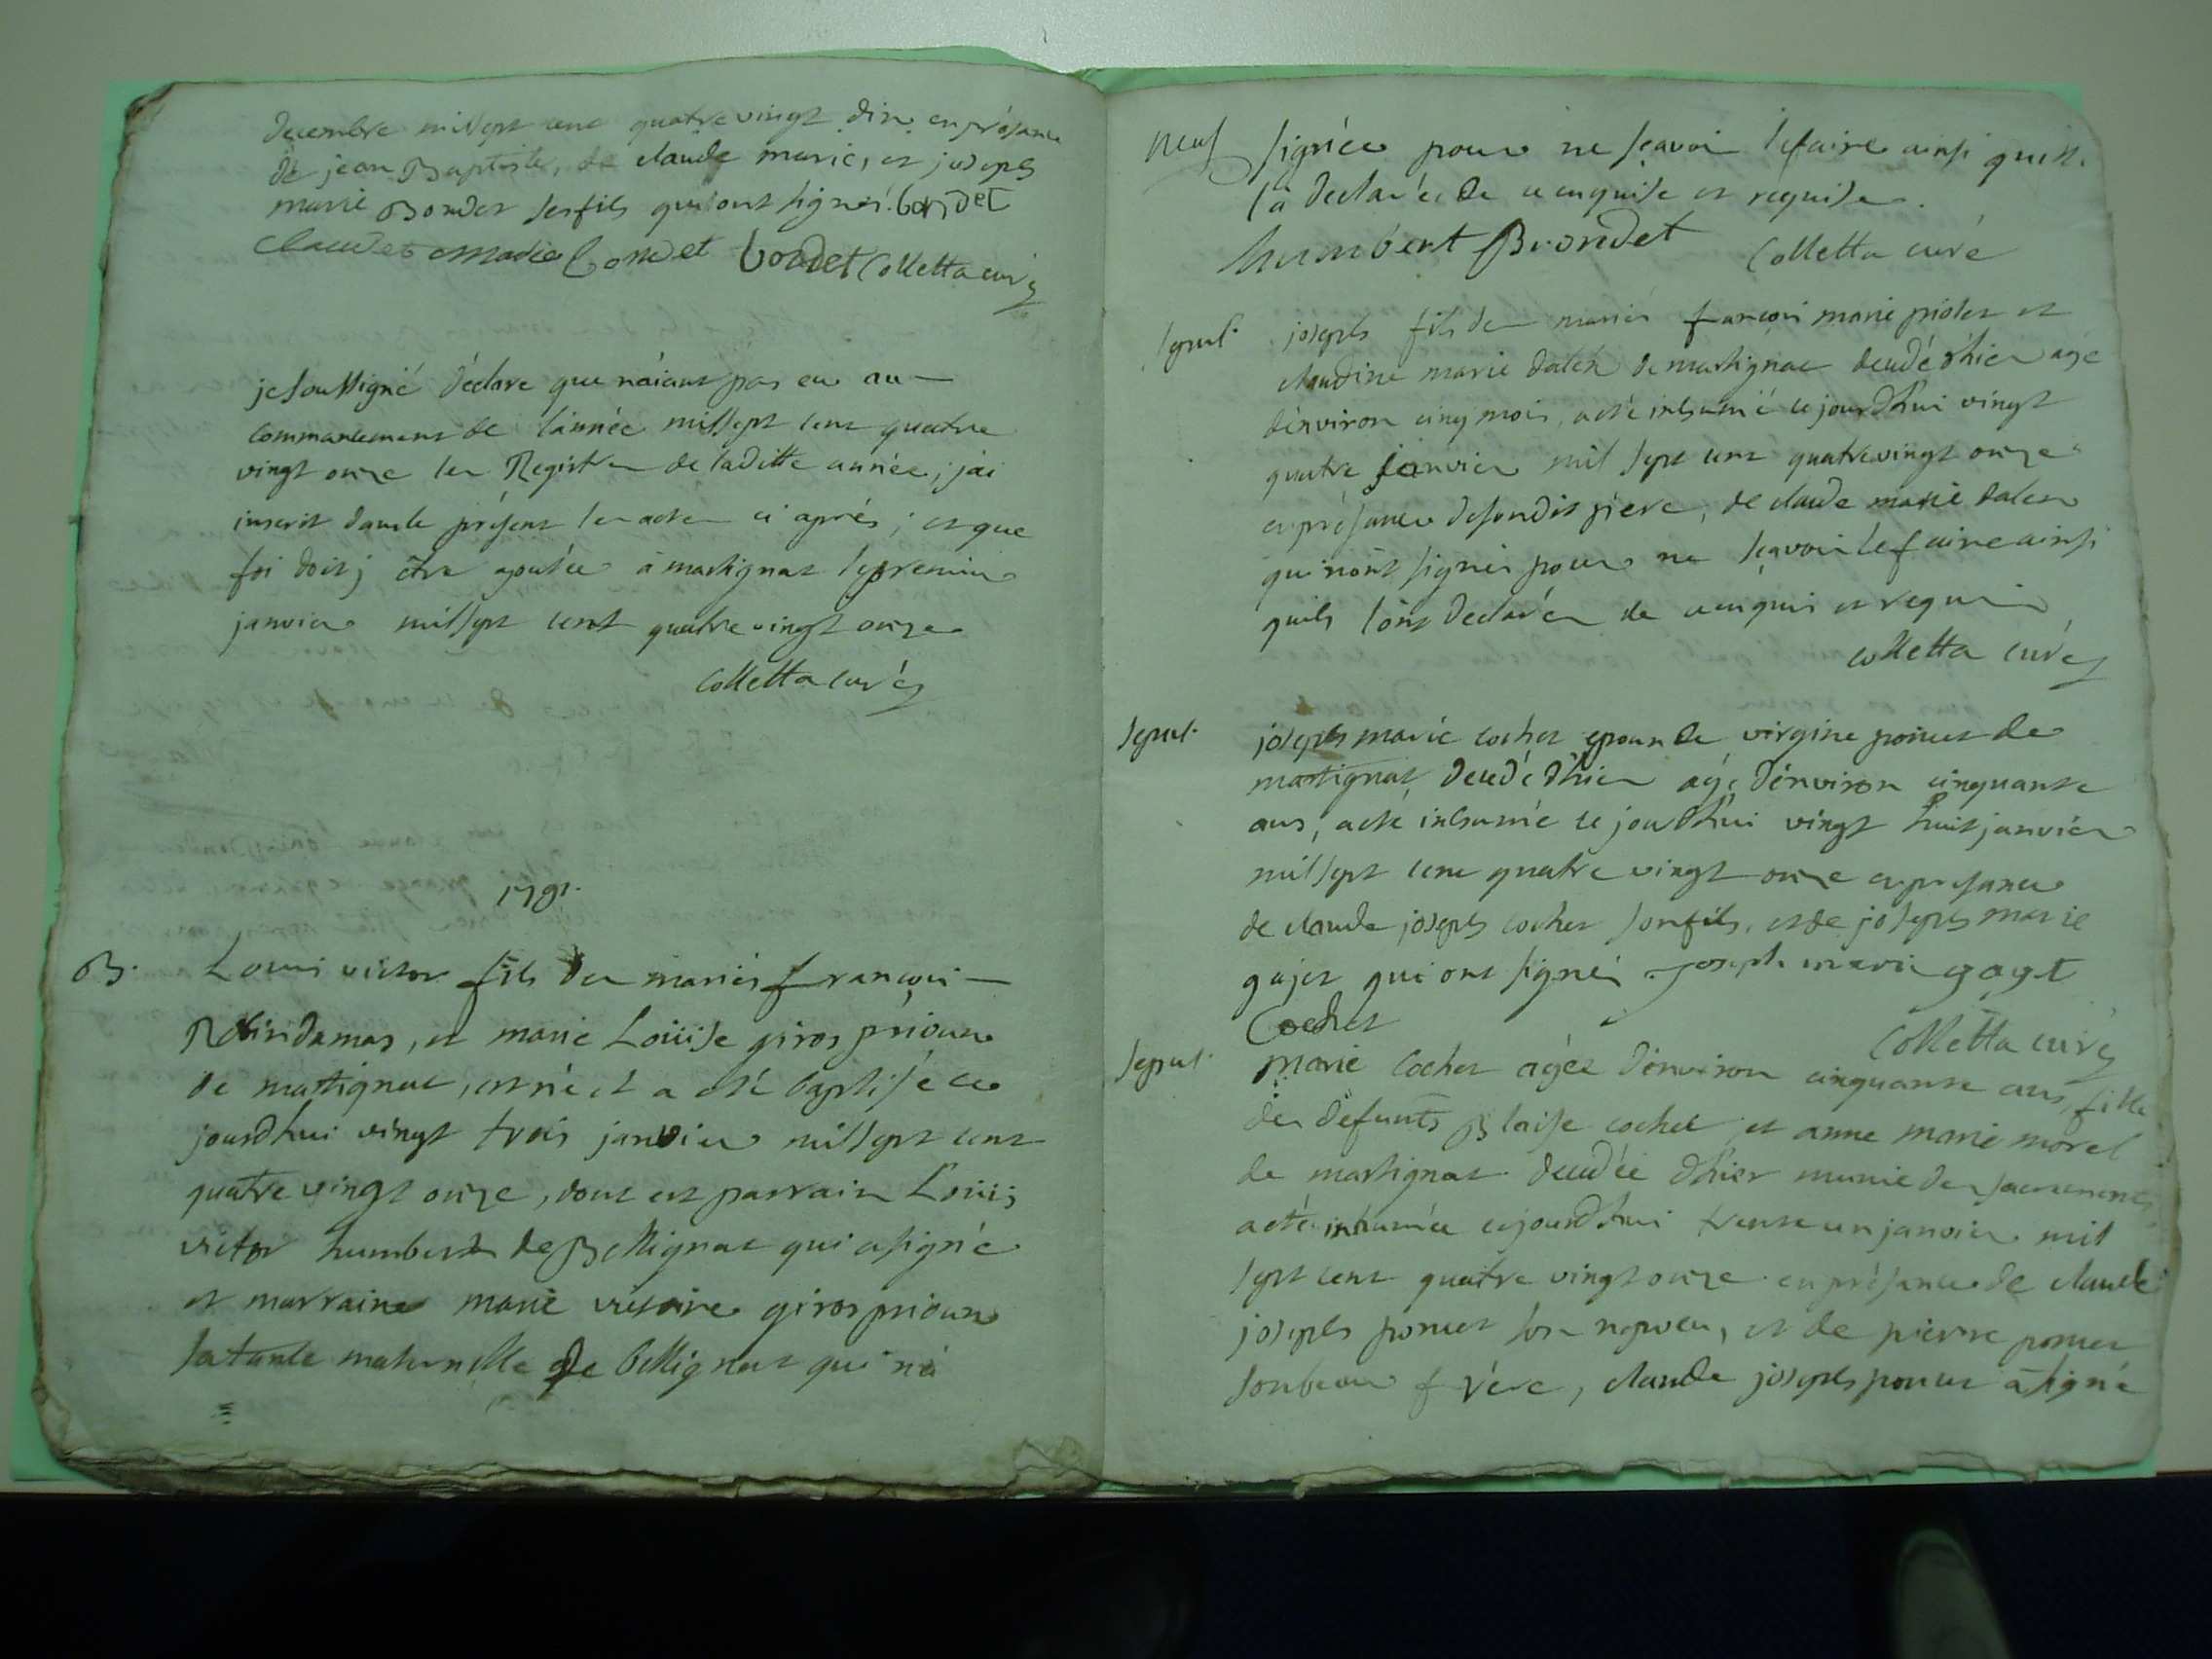 decembre mil sept cent quatre vingt dix en présance
de jean Baptiste, de claude marie, et joseph
marie Bondet ses fils qui ont signés. bondet
Claude marie bondet bondet Colletta curé
je soussigné déclare que n'aiant pas eu au
commancement de l'année mil sept cent quatre
vingt onze les Registres de laditte année, j'ai
inscrit dans le présent les actes ci après ; et que
foi doit j être ajoutée à martignat le premier
janvier mil sept cent quatre vingt onze
Colletta curé
1791.
B. Louis victor fils des mariés françois
damas, et marie Louise giros prioux
de martignat, est né et a été baptisé ce
jourdhui vingt trois janvier mil sept cent
quatre vingt onze, dont est parrain Louis
victor humbert de Bellignat qui a signé
et marraine marie victoire giros prioux
sa tante maternelle de bellignat qui n'a
neuf signée pour ne sçavoir le faire ainsi quell.
l'a declarée de ce enquise et requise.
humbert Brondet Colletta curé
sepul. joseph fils des mariés francois marie piolet et
claudine marie dalex de martignat decedé d'hier agé
d'environ cinq mois, a été inhumé ce jourdhui vingt
quatre janvier mil sept cent quatre vingt onze
en présance de sondit pere, de claude marie dalex
qui n'ont signés pour ne sçavoir le faire ainsi
quils l'ont declarés de ce enquis et requis
colletta curé
sepul. joseph marie cochet epoux de virgine poncet de
martignat, decedé d'hier agé d'environ cinquante
ans, a été inhumé ce jourdhui vingt huit janvier
mil sept cent quatre vingt onze en presance
de claude joseph cochet son fils, et de joseph marie
gajet qui ont signés joseph marie gagt
Cochet
Colletta curé
sepul. marie cochet agée d'environ cinquante ans, fille
des defunts Blaise cochet et anne marie morel
de martignat decedée d'hier munie des sacremens
a été inhumée ce jourdhui trente un janvier mil
sept cent quatre vingt onze en présance de claude
joseph poncet son neveu, et de pierre poncet
son beau frere, claude joseph poncet a signé